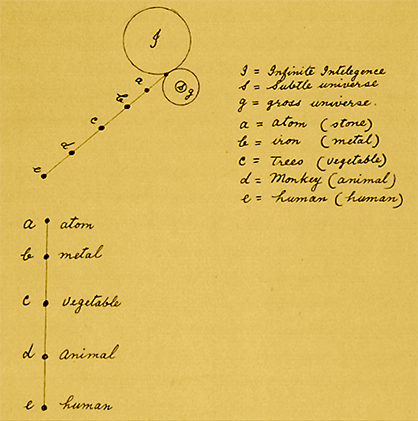 I
a
S g
b
c
d
e
I = Infinite Intelegence
S = Subtle universe
g = gross universe.
a = atom (stone)
b = iron (metal)
c = Trees (vegetable)
d = Monkey (animal)
e = human (human)
a atom
b metal
c vegetable
d animal
e human